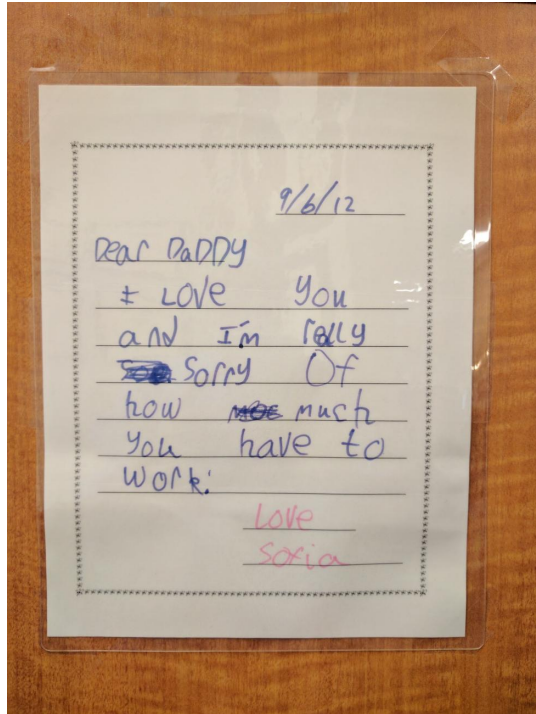 9/6/12
Dear DaDDY
I LOVe You
and I'm rally
Sorry Of
how much
You have to
work.
Love
Sofia